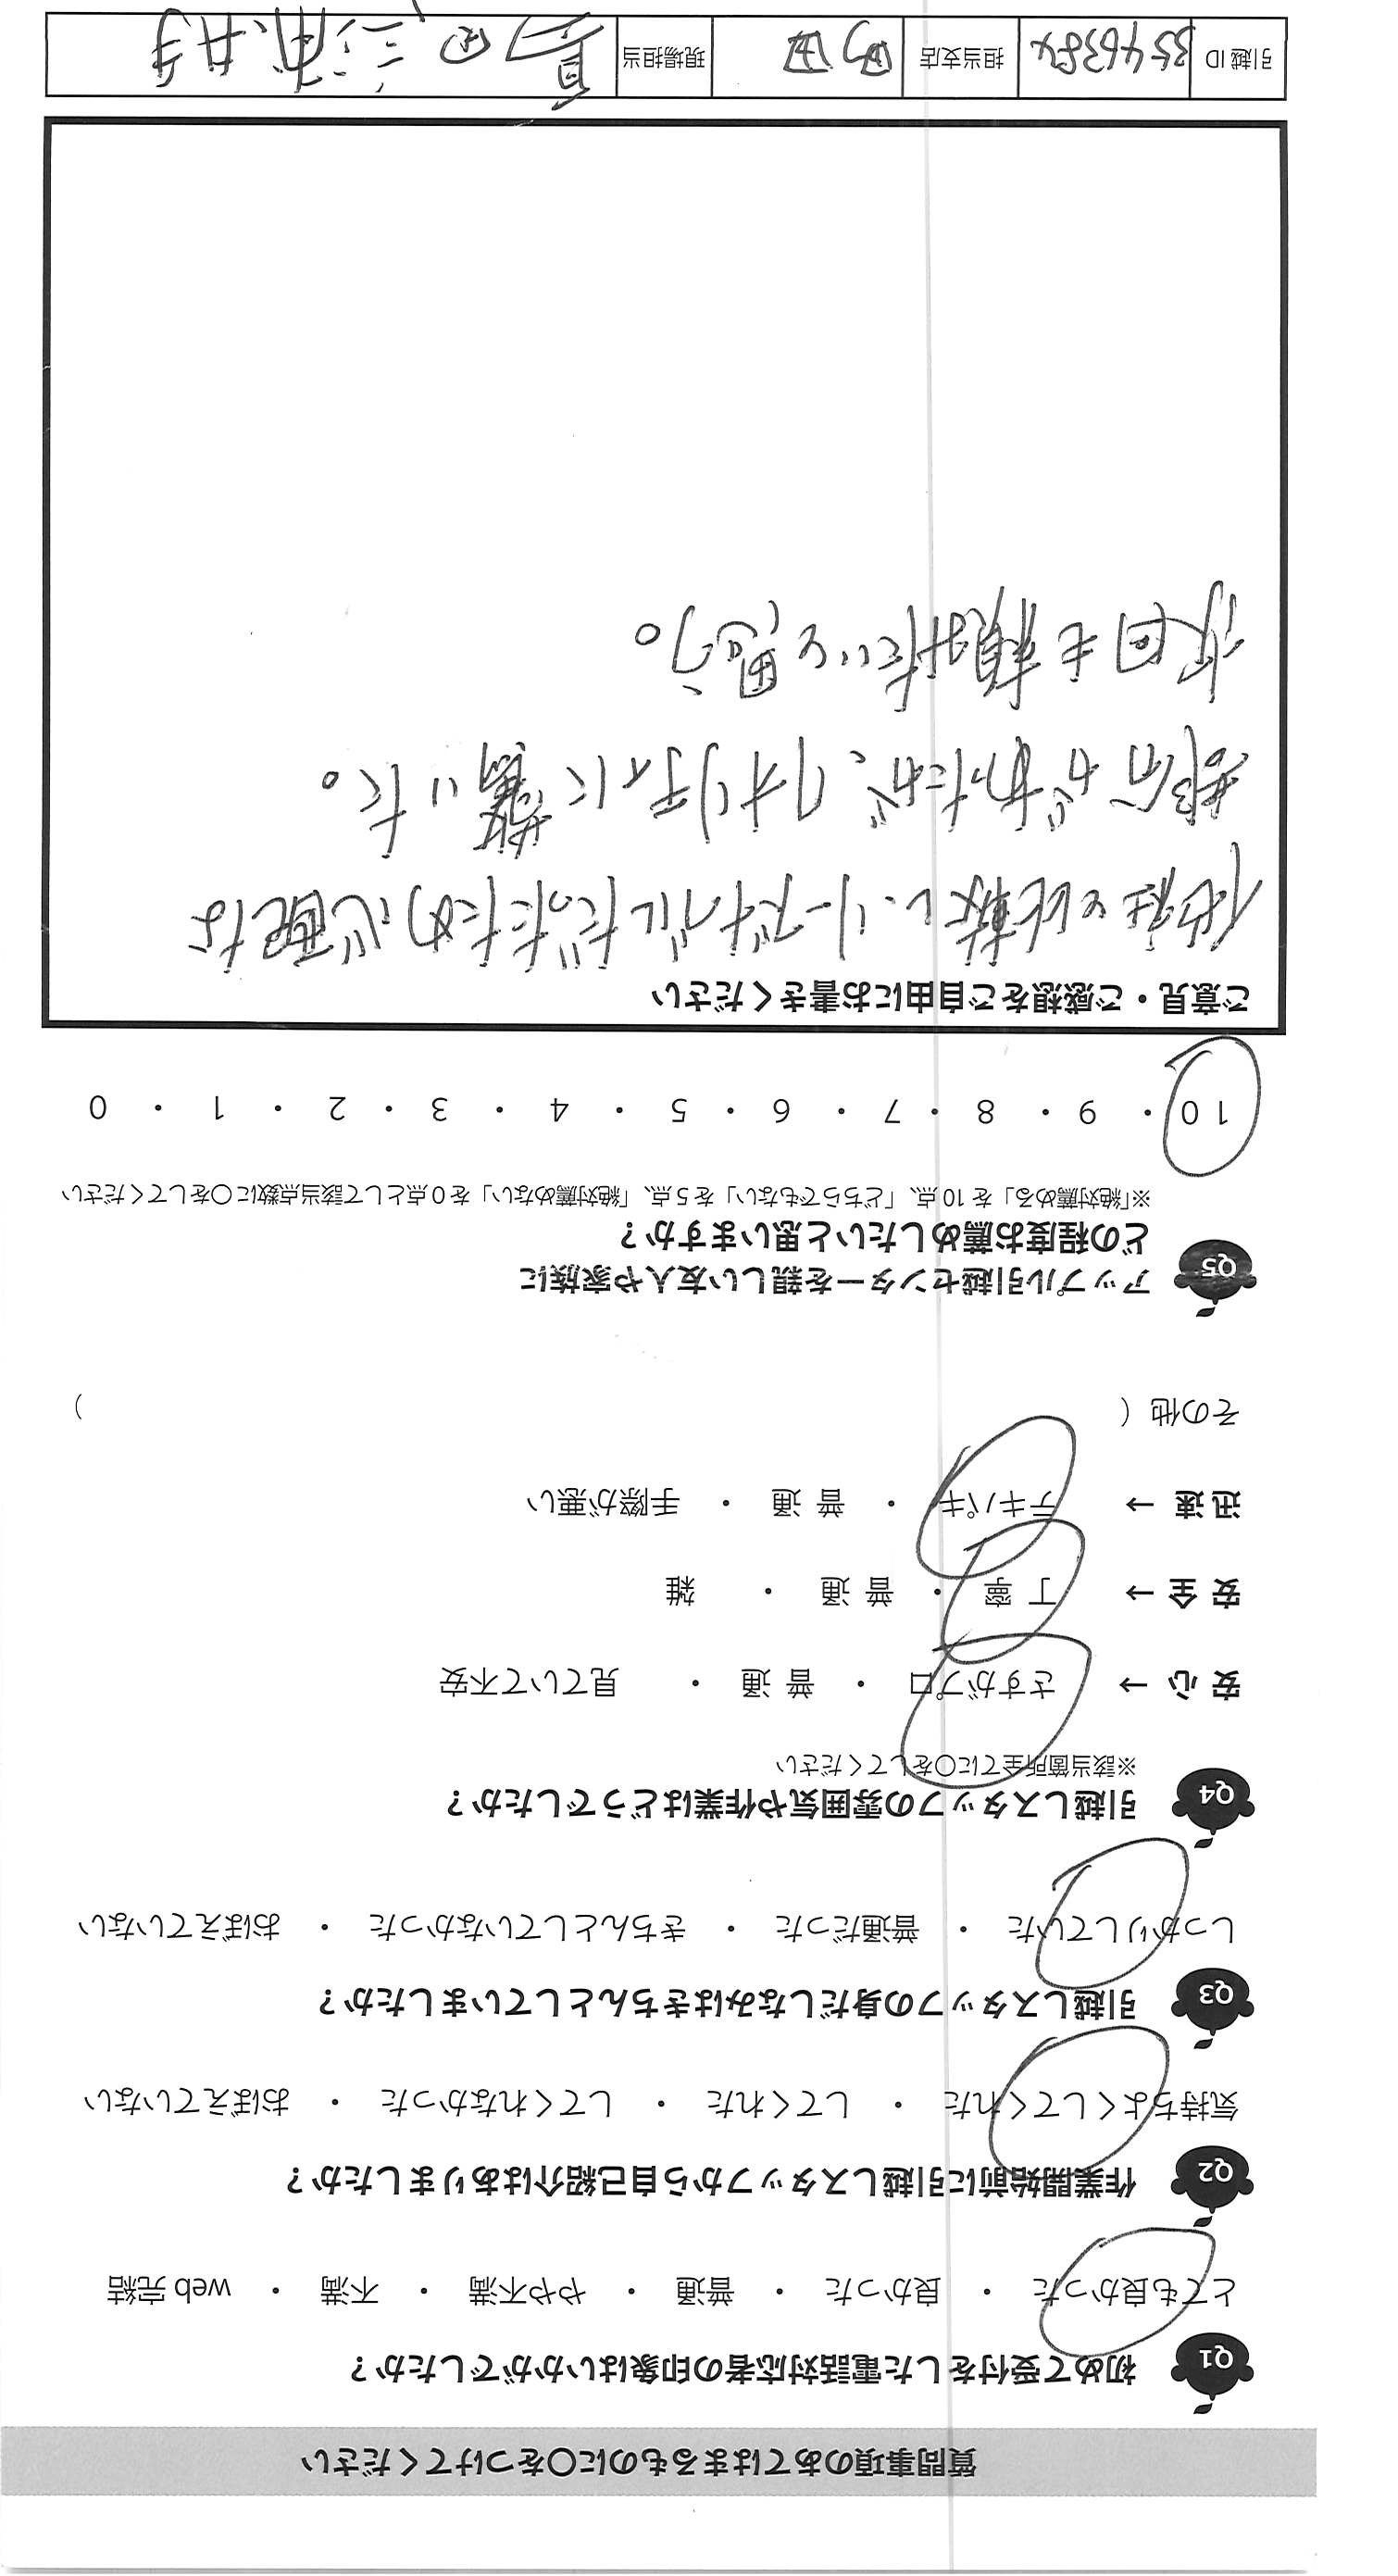 質問事項のあてはまるものに〇をつけてください
Q1 初めて受付をした電話対応者の印象はいかがでしたか？
とても良かった ・ 良かった ・ 普通 ・ やや不満 ・ 不満 ・ web 完結
Q2 作業開始前に引越しスタッフから自己紹介はありましたか？
気持ちよくしてくれた ・ してくれた ・ してくれなかった ・ おぼえていない
Q3 引越しスタッフの身だしなみはきちんとしていましたか？
しっかりしていた ・ 普通だった ・ きちんとしていなかった ・ おぼえていない
Q4 引越しスタッフの雰囲気や作業はどうでしたか？
※該当箇所全てに〇をしてください
安心 → さすがプロ ・ 普通 ・ 見ていて不安
安全 → 丁寧 ・ 普通 ・ 雑
迅速 → テキパキ ・ 普通 ・ 手際が悪い
その他（ ）
Q5 アップル引越センターを親しい友人や家族に
どの程度お薦めしたいと思いますか？
※「絶対薦める」を 10 点、「どちらでもない」を 5 点、「絶対薦めない」を 0 点として該当点数に〇をしてください
10 ・ 9 ・ 8 ・ 7 ・ 6 ・ 5 ・ 4 ・ 3 ・ 2 ・ 1 ・ 0
ご意見・ご感想をご自由にお書きください
他社と比較し、リーズナブルだったため心配な
部分があったが、クオリティに驚いた。
次回も頼みたいと思う。
引越 ID 担当支店 町田 現場担当